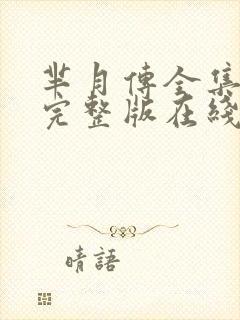 芈月傳全集
完整版在綫
晴語